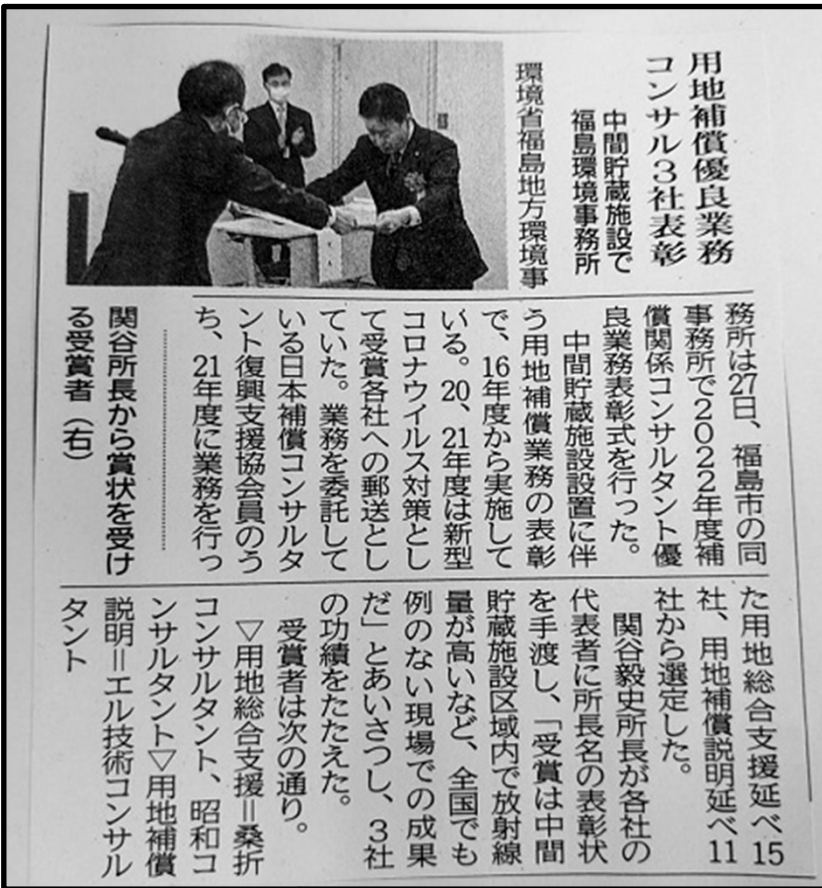 用地補償優良業務
コンサル3社表彰
中間貯蔵施設で
福島環境事務所
環境省福島地方環境事
務所は27日、福島市の同
事務所で2022年度補
償関係コンサルタント優
良業務表彰式を行った。
中間貯蔵施設設置に伴
う用地補償業務の表彰
で、16年度から実施して
いる。20、21年度は新型
コロナウイルス対策とし
て受賞各社への郵送とし
ていた。業務を委託して
いる日本補償コンサルタ
ント復興支援協会員のう
ち、21年度に業務を行っ
関谷所長から賞状を受け
る受賞者（右）
た用地総合支援延べ15
社、用地補償説明延べ11
社から選定した。
関谷毅史所長が各社の
代表者に所長名の表彰状
を手渡し、「受賞は中間
貯蔵施設区域内で放射線
量が高いなど、全国でも
例のない現場での成果
だ」とあいさつし、3社
の功績をたたえた。
受賞者は次の通り。
▽用地総合支援＝桑折
コンサルタント、昭和コ
ンサルタント▽用地補償
説明＝エル技術コンサル
タント